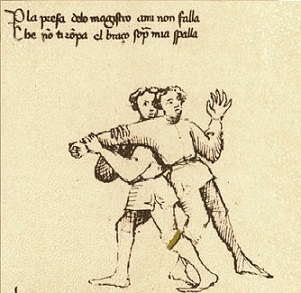 P la presa delo magistro a mi non falla
C he nō ti rōpa el braço sopra mia spalla